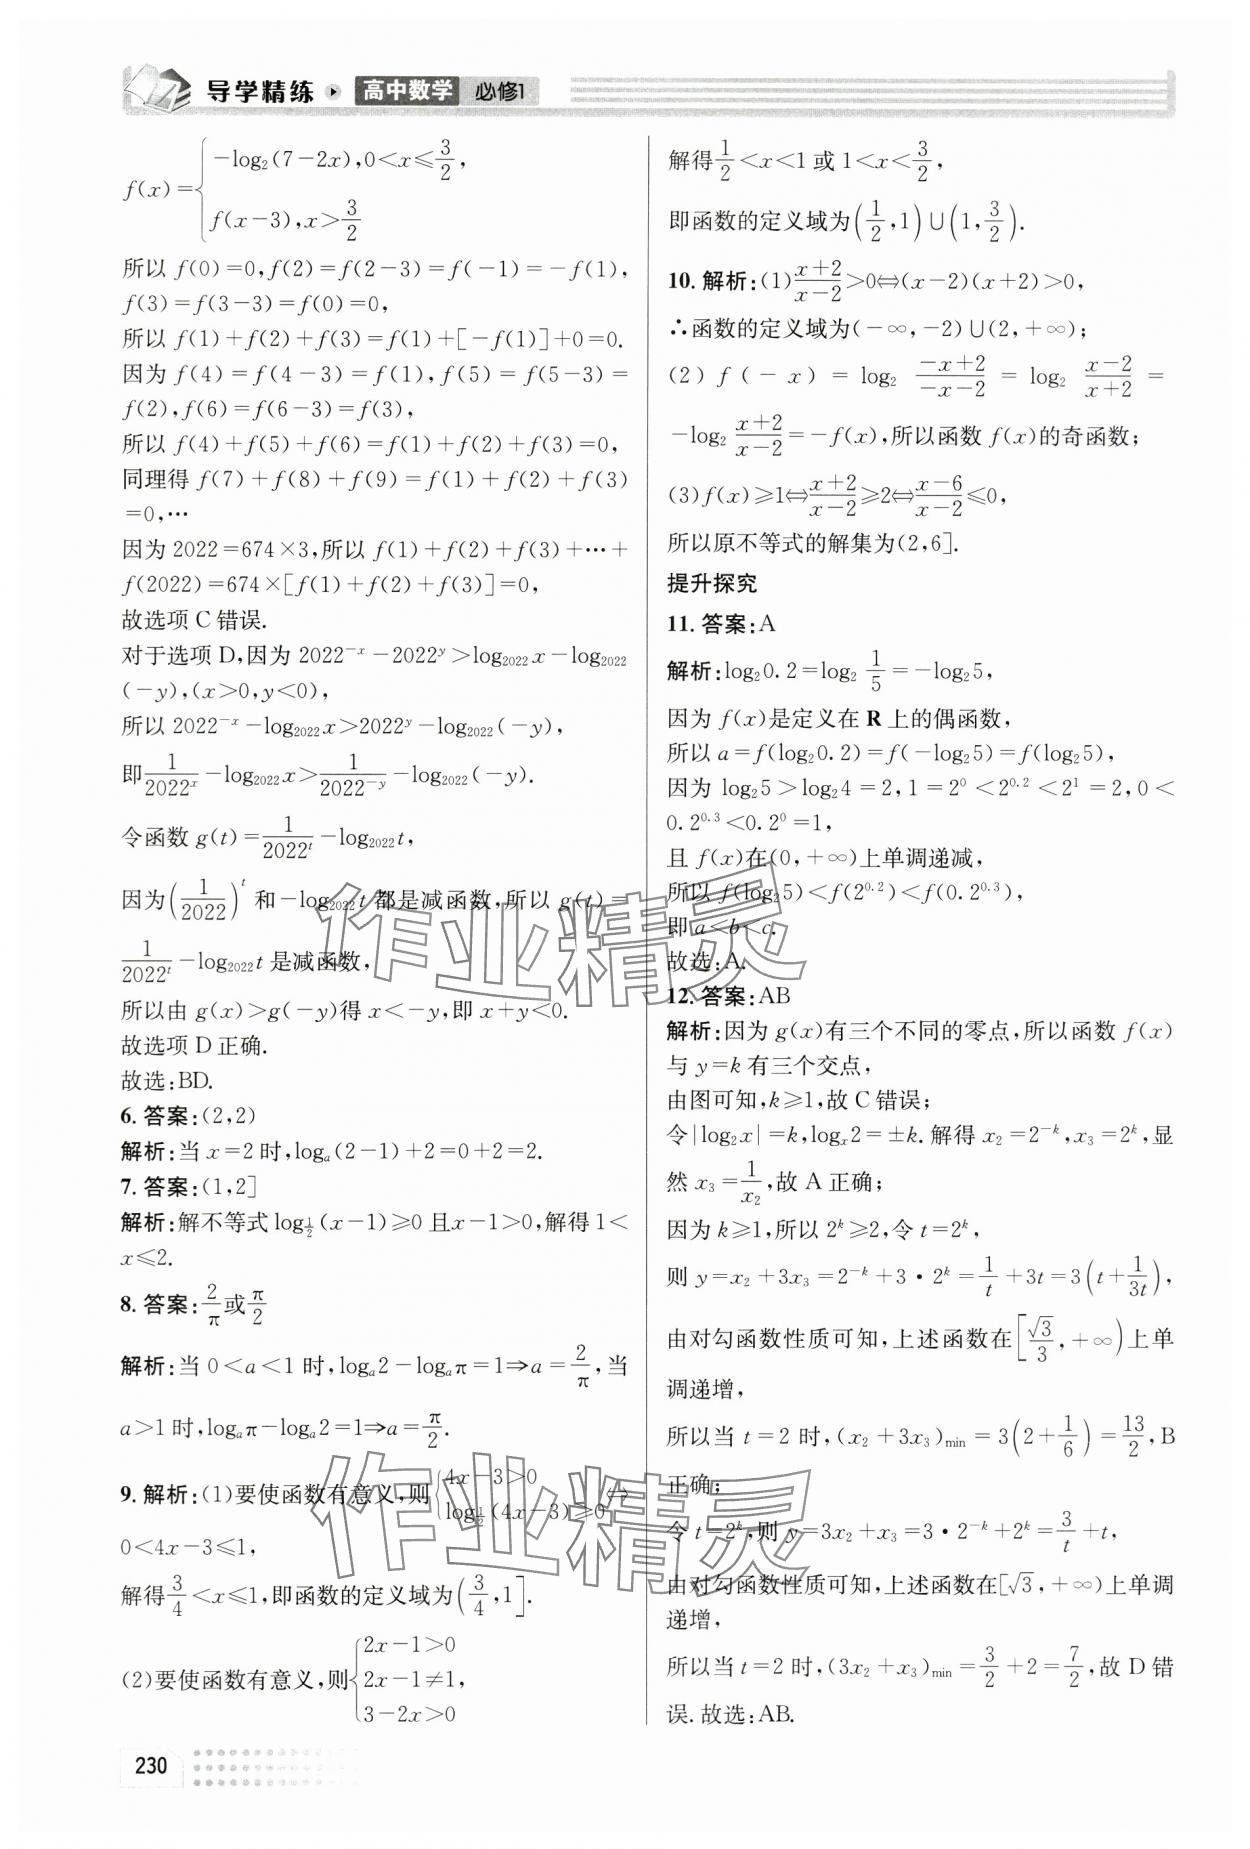 导学精练 高中数学 必修1
f(x)={-log₂(7-2x),0<x≤3/2,
f(x-3),x>3/2
所以 f(0)=0,f(2)=f(2-3)=f(-1)=-f(1),
f(3)=f(3-3)=f(0)=0,
所以 f(1)+f(2)+f(3)=f(1)+[-f(1)]+0=0.
因为 f(4)=f(4-3)=f(1),f(5)=f(5-3)=
f(2),f(6)=f(6-3)=f(3),
所以 f(4)+f(5)+f(6)=f(1)+f(2)+f(3)=0,
同理得 f(7)+f(8)+f(9)=f(1)+f(2)+f(3)
=0,…
因为 2022=674×3,所以 f(1)+f(2)+f(3)+…+
f(2022)=674×[f(1)+f(2)+f(3)]=0,
故选项 C 错误.
对于选项 D,因为 2022^{-x}-2022^y>log₂₀₂₂x-log₂₀₂₂
(-y),(x>0,y<0),
所以 2022^{-x}-log₂₀₂₂x>2022^y-log₂₀₂₂(-y),
即1/2022^x-log₂₀₂₂x>1/2022^{-y}-log₂₀₂₂(-y).
令函数 g(t)=1/2022^t-log₂₀₂₂t,
因为(1/2022)^t 和-log₂₀₂₂t 都是减函数,所以 g(t)=
1/2022^t-log₂₀₂₂t 是减函数,
所以由 g(x)>g(-y)得 x<-y,即 x+y<0.
故选项 D 正确.
故选:BD.
6. 答案:(2,2)
解析:当 x=2 时,logₐ(2-1)+2=0+2=2.
7. 答案:(1,2]
解析:解不等式 log_{1/2}(x-1)≥0 且x-1>0,解得 1<
x≤2.
8. 答案:2/π或π/2
解析:当 0<a<1 时,logₐ2-logₐπ=1⇒a=2/π,当
a>1 时,logₐπ-logₐ2=1⇒a=π/2.
9. 解析:(1)要使函数有意义,则{4x-3>0
log_{1/2}(4x-3)≥0⇔
0<4x-3≤1,
解得3/4<x≤1,即函数的定义域为(3/4,1].
(2)要使函数有意义,则{2x-1>0
2x-1≠1,
3-2x>0
解得1/2<x<1 或 1<x<3/2,
即函数的定义域为(1/2,1)∪(1,3/2).
10. 解析:(1)(x+2)/(x-2)>0⇔(x-2)(x+2)>0,
∴函数的定义域为(-∞,-2)∪(2,+∞);
(2) f(-x)=log₂ (-x+2)/(-x-2)=log₂ (x-2)/(x+2)=
-log₂ (x+2)/(x-2)=-f(x),所以函数 f(x)的奇函数;
(3)f(x)≥1⇔(x+2)/(x-2)≥2⇔(x-6)/(x-2)≤0,
所以原不等式的解集为(2,6].
提升探究
11. 答案:A
解析:log₂0.2=log₂ 1/5=-log₂5,
因为 f(x)是定义在 R 上的偶函数,
所以 a=f(log₂0.2)=f(-log₂5)=f(log₂5),
因为 log₂5>log₂4=2,1=2^0<2^{0.2}<2^1=2,0<
0.2^{0.3}<0.2^0=1,
且 f(x)在(0,+∞)上单调递减,
所以 f(log₂5)<f(2^{0.2})<f(0.2^{0.3}),
即 a<b<c.
故选:A.
12. 答案:AB
解析:因为 g(x)有三个不同的零点,所以函数 f(x)
与 y=k 有三个交点,
由图可知,k≥1,故 C 错误;
令|log₂x|=k,logₓ2=±k. 解得 x₂=2^{-k},x₃=2^k,显
然 x₃=1/x₂,故 A 正确;
因为 k≥1,所以 2^k≥2,令 t=2^k,
则 y=x₂+3x₃=2^{-k}+3·2^k=1/t+3t=3(t+1/3t),
由对勾函数性质可知,上述函数在[√3/3,+∞)上单
调递增,
所以当 t=2 时,(x₂+3x₃)min=3(2+1/6)=13/2,B
正确;
令 t=2^k,则 y=3x₂+x₃=3·2^{-k}+2^k=3/t+t,
由对勾函数性质可知,上述函数在[√3,+∞)上单调
递增,
所以当 t=2 时,(3x₂+x₃)min=3/2+2=7/2,故 D 错
误. 故选:AB.
230
作业精灵
作业精灵